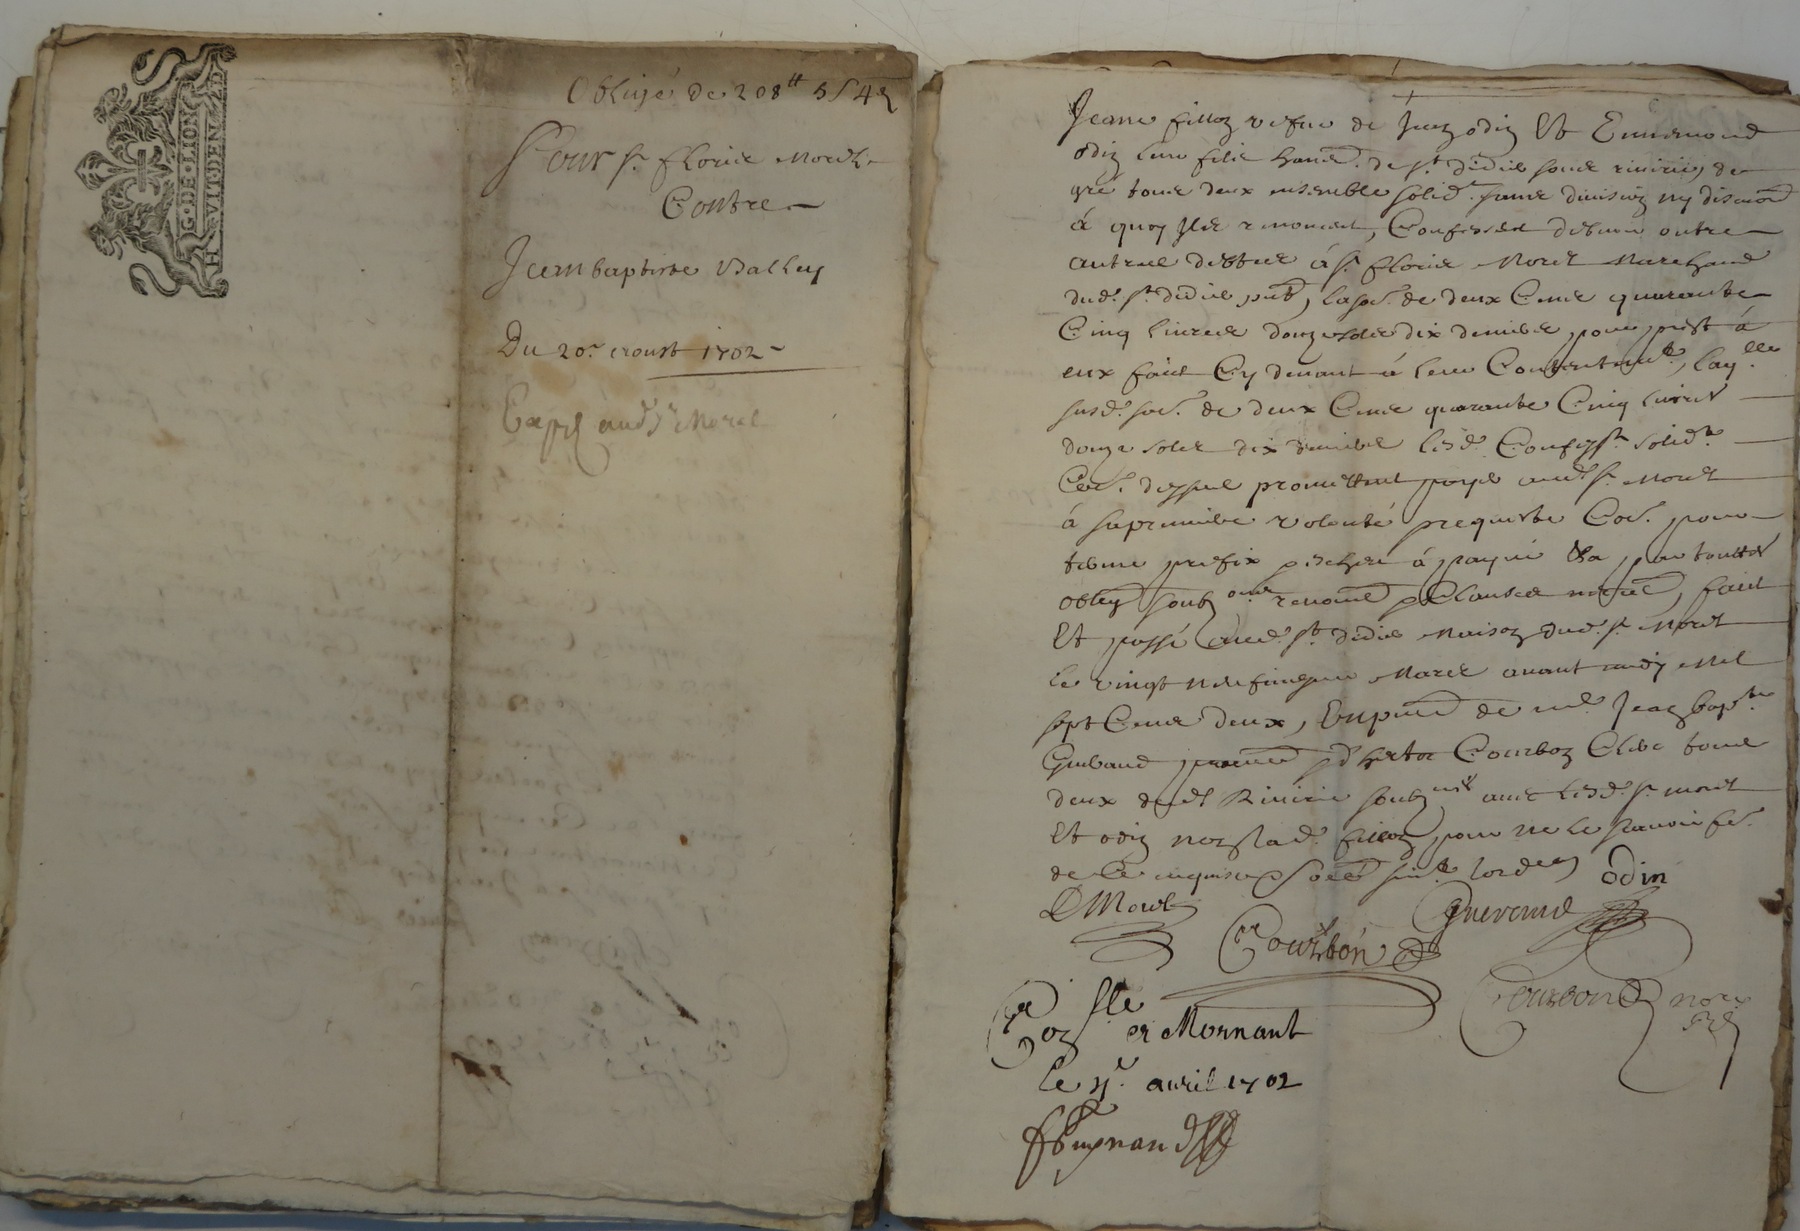 G·DE·LION
H VIT·DEN 2D
Obligé de 208tt 5s 4d
Pour sr. florie Morel
Contre
Jeanbaptiste Balley
Du 20e aoust 1702
Expé aud sr Morel
Jeane fillon vefve de Jean odin Et Ennemond
odin leur filz habit. de st. didier soubz riverie, de
gré tous deux ensemble solid. sans division ny discuon
á quoy Ilz renoncent, Confessent debvoir entre
autres debtes á sr. florie Morel Marchand
dud. st. didier pnt, la so. de deux Cens quarante
Cinq livres douze solz dix deniers, pour prest á
eux fait Cy devant á leur Contentemt., laqlle
susd. so. de deux Cens quarante Cinq livres
douze solz dix deniers lesd. Confesst. solidt.
Co. dessus promettent payer aud. sr. Morel
á sa premiere volonté requeste Co. pour
terme prefix escheu á payer, par touttes
oblig soubz renonc clauses necess, fait
Et passé aud. st. didier Maison dud. sr. Morel
le vingt neufiesme Mars avant midy Mil
sept Cens deux, En pnce de me. Jean bapte.
Guerand Courbon Clerc tous
deux dud Riverie soubzne avec lesd. sr. morel
Et odin non lad. fillon pour ne le scavoir fe.
de Ce enquise
odin
DMorel
Guerand
Courbon
Courbon nore
Con lle
er Mornant
le avril 1702